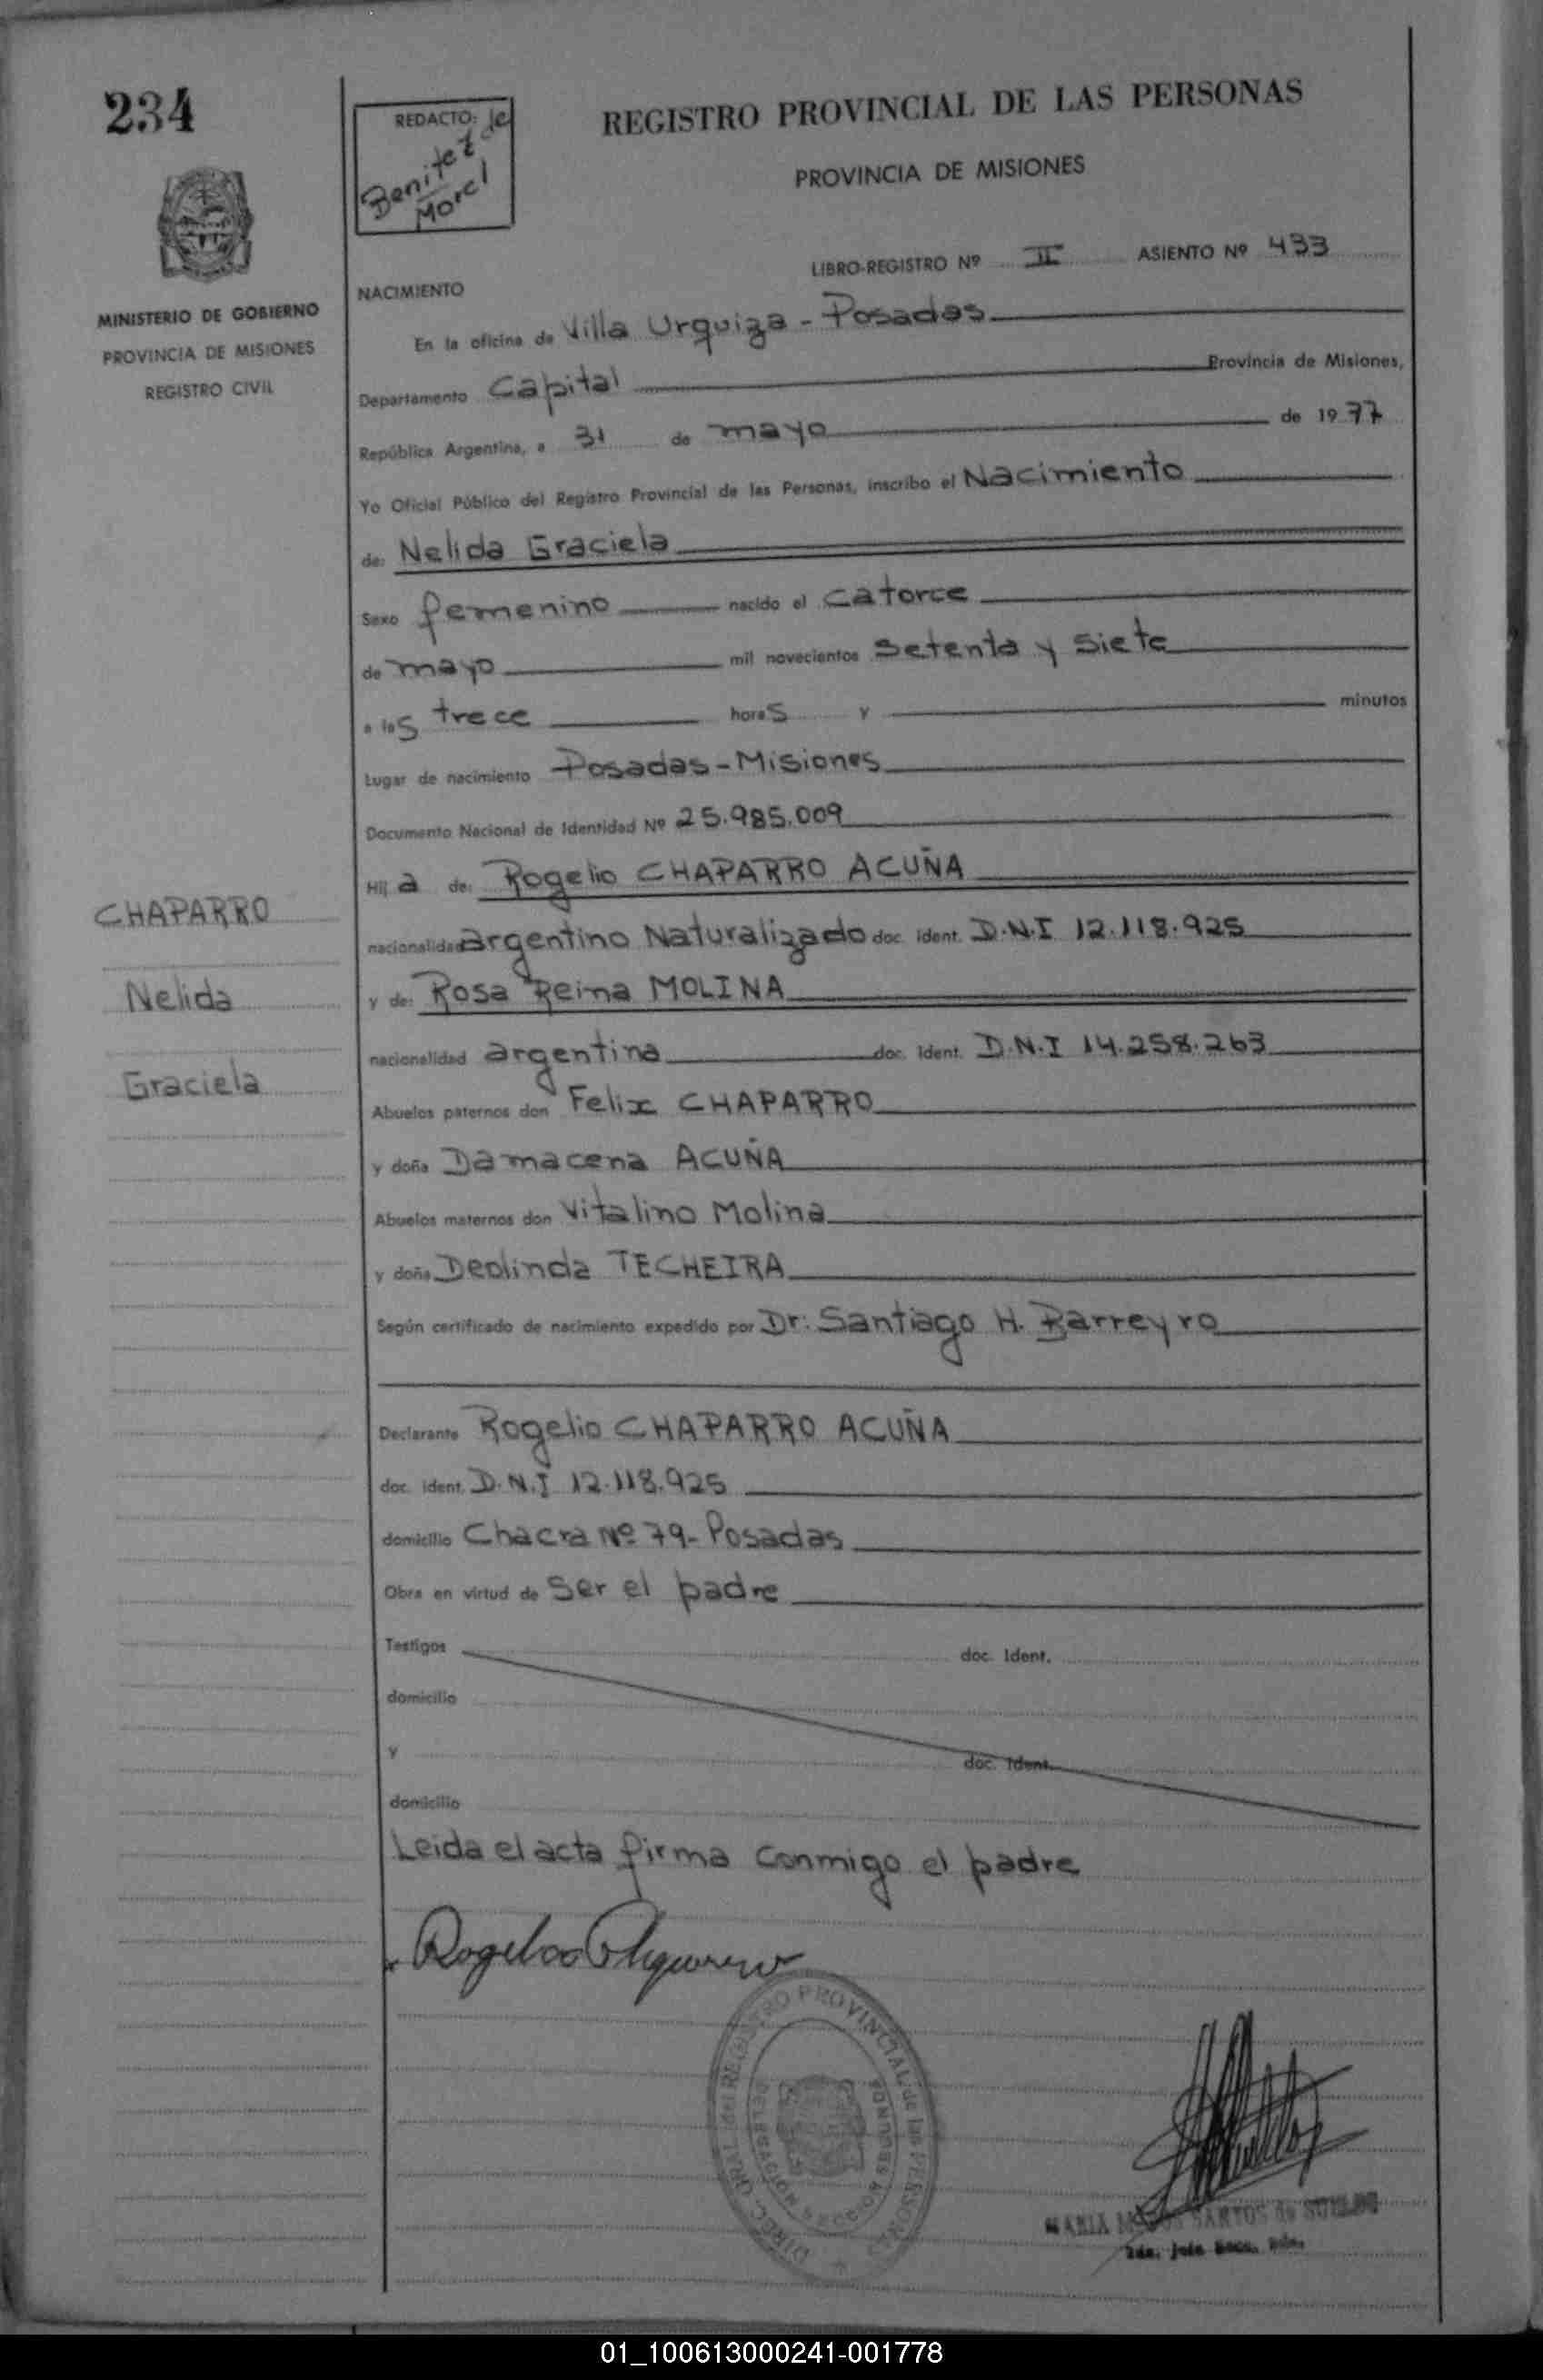 234
REDACTO: de
Benitez de
Morel
REGISTRO PROVINCIAL DE LAS PERSONAS
PROVINCIA DE MISIONES
MINISTERIO DE GOBIERNO
PROVINCIA DE MISIONES
REGISTRO CIVIL
LIBRO-REGISTRO Nº II ASIENTO Nº 433
NACIMIENTO
En la oficina de Villa Urquiza - Posadas
Departamento Capital Provincia de Misiones,
República Argentina, a 31 de mayo de 1977
Yo Oficial Público del Registro Provincial de las Personas, inscribo el Nacimiento
de: Nelida Graciela
Sexo femenino nacido el catorce
de mayo mil novecientos setenta y siete
a las trece horas y minutos
Lugar de nacimiento Posadas - Misiones
Documento Nacional de Identidad Nº 25.985.009
Hija de: Rogelio CHAPARRO ACUÑA
nacionalidad argentino Naturalizado doc. ident. D.N.I 12.118.925
y de: Rosa Reina MOLINA
nacionalidad argentina doc. ident. D.N.I 14.258.263
Abuelos paternos don Felix CHAPARRO
y doña Damacena ACUÑA
Abuelos maternos don Vitalino Molina
y doña Deolinda TECHEIRA
Según certificado de nacimiento expedido por Dr. Santiago H. Barreyro
CHAPARRO
Nelida
Graciela
Declarante Rogelio CHAPARRO ACUÑA
doc. ident. D.N.I 12.118.925
domicilio Chacra Nº 79 - Posadas
Obra en virtud de ser el padre
Testigos doc. ident.
domicilio
y doc. ident.
domicilio
Leida el acta firma conmigo el padre
DIREC. GRAL. del REGISTRO PROVINCIAL de las PERSONAS
DELEGACION SEGUNDA
MARIA SANTOS de
01_100613000241-001778